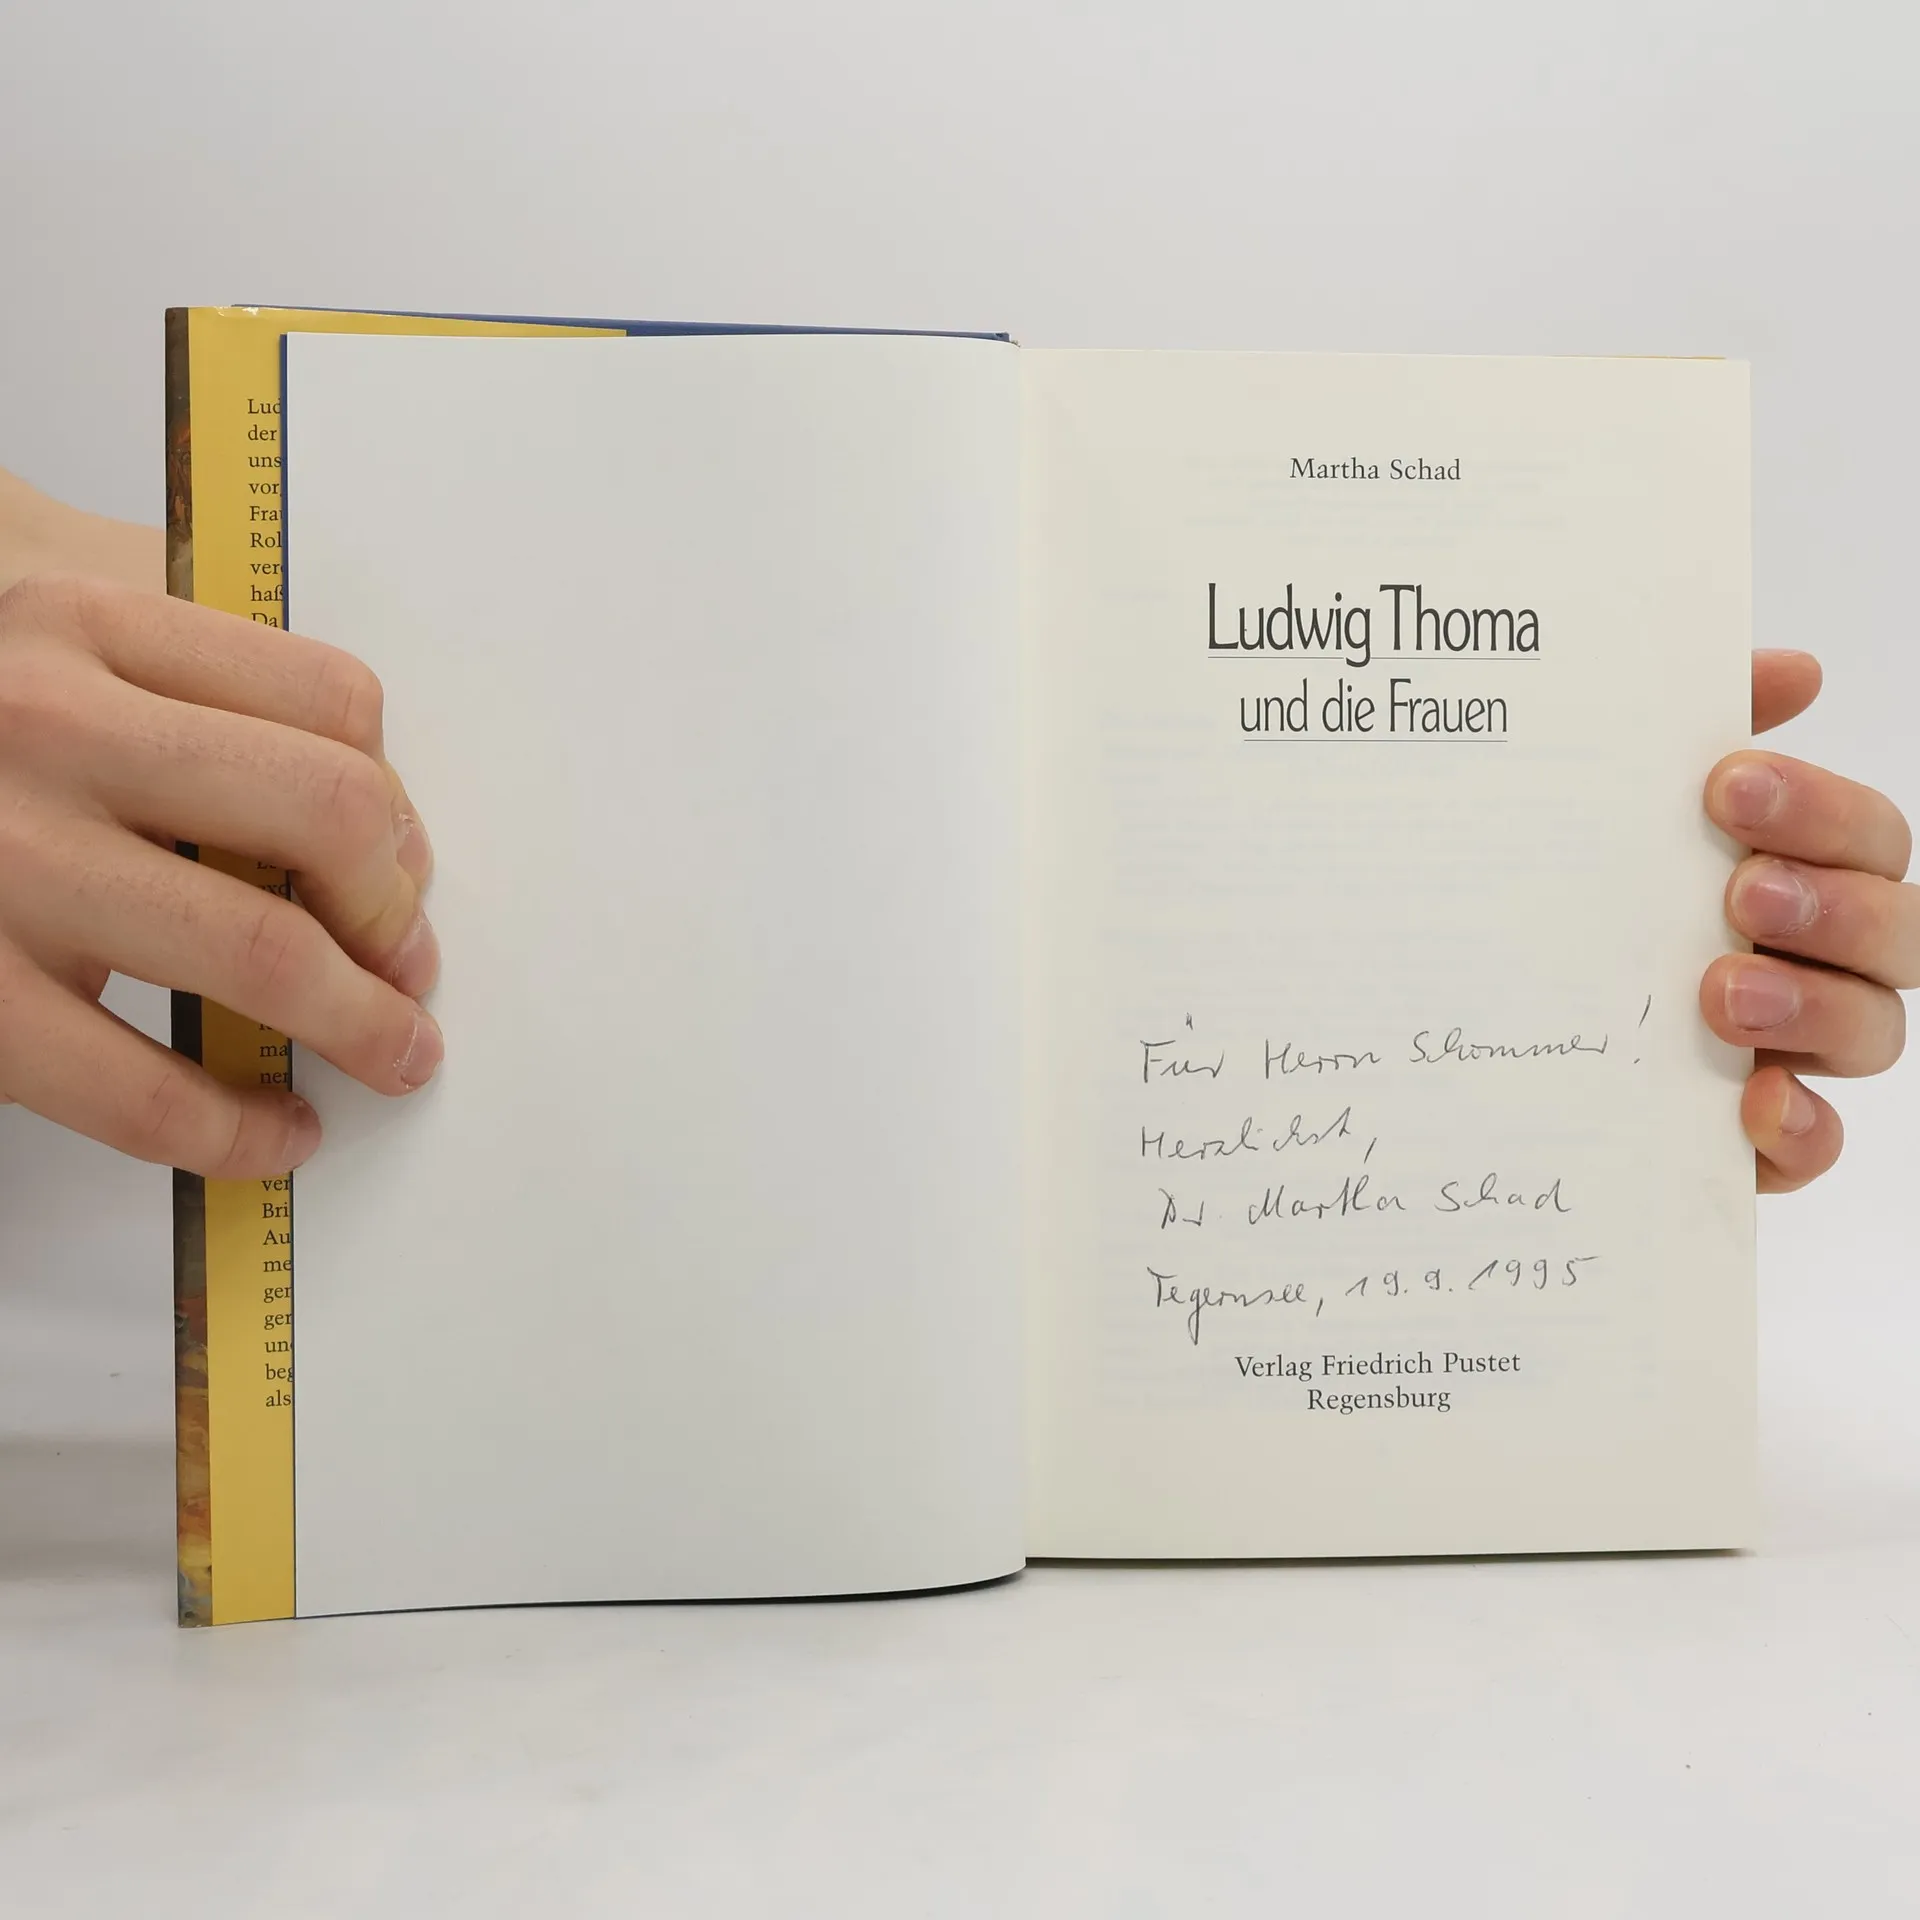 Lud
der
uns
vor
Fra
Rol
ver
haß
Da
ma
ner
ver
Bri
Au
me
gen
ger
un
beg
als
Martha Schad
Ludwig Thoma
und die Frauen
Für Herrn Schommer!
Herzlichst,
Dr. Martha Schad
Tegernsee, 19.9.1995
Verlag Friedrich Pustet
Regensburg